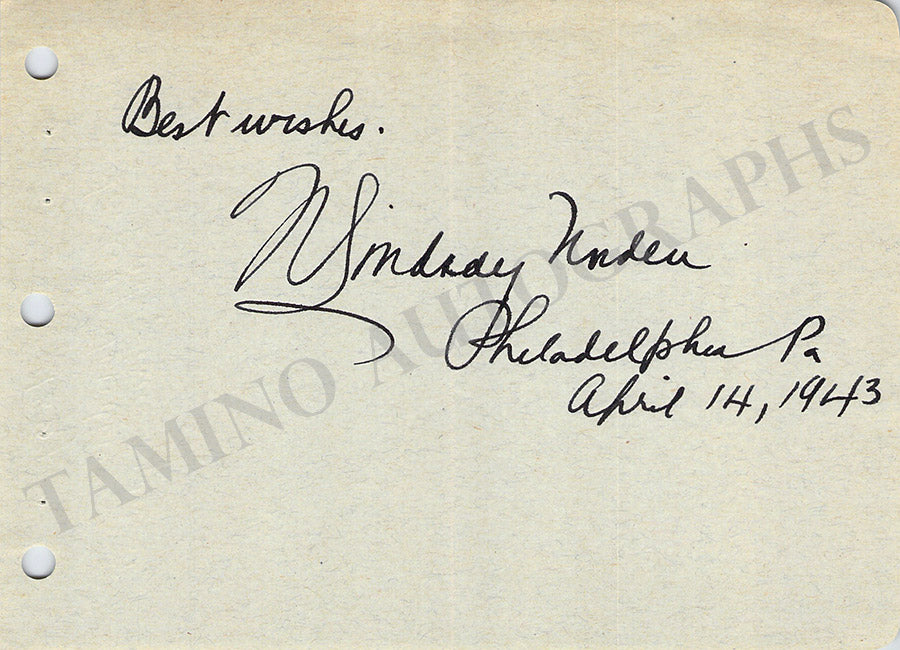 Best wishes.
N Lindsay Norden
Philadelphia Pa
April 14, 1943
TAMINO AUTOGRAPHS